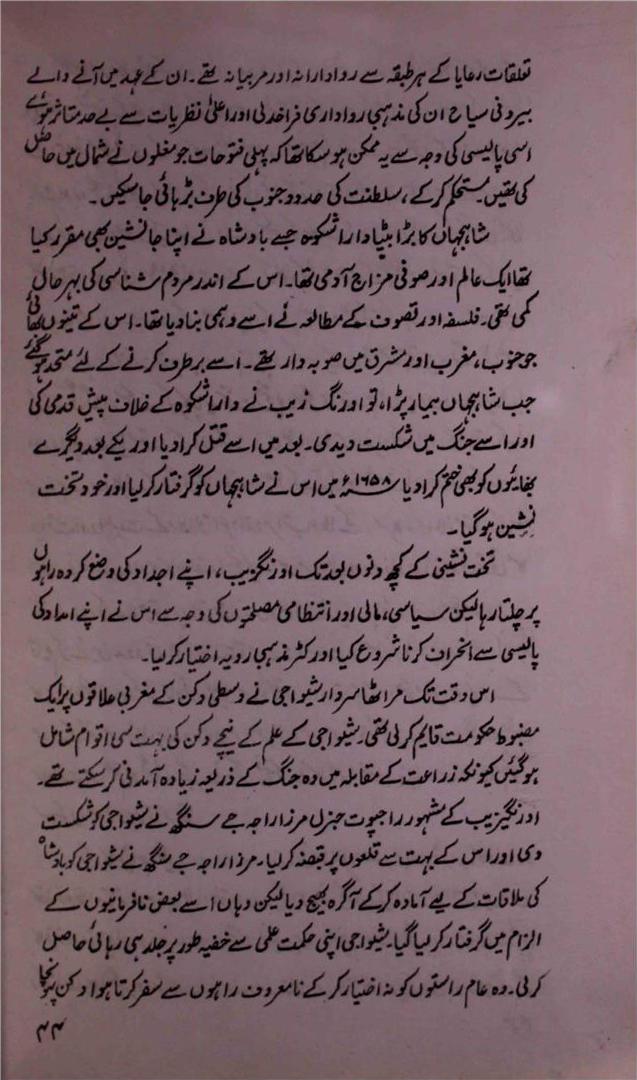 تعلقات رعایا کے ہر طبقہ سے روادارانہ اور مربیانہ تھے۔ ان کے عہد میں آنے والے
بیرونی سیاح ان کی مذہبی رواداری فراخدلی اور اعلیٰ نظریات سے بے حد متاثر ہوئے
اسی پالیسی کی وجہ سے یہ ممکن ہو سکا تھا کہ پہلی فتوحات جو مغلوں نے شمال میں حاصل
کی تھیں۔ مستحکم کر کے، سلطنت کی حدود جنوب کی طرف بڑہائی جا سکیں۔
شاہجہاں کا بڑا بیٹا دارا شکوہ جسے بادشاہ نے اپنا جانشین بھی مقرر کیا
تھا ایک عالم اور صوفی مزاج آدمی تھا۔ اس کے اندر مردم شناسی کی بہرحال
کمی تھی۔ فلسفہ اور تصوف کے مطالعہ نے اسے وہمی بنا دیا تھا۔ اس کے تینوں بھائی
جو جنوب، مغرب اور مشرق میں صوبہ دار تھے۔ اسے برطرف کرنے کے لئے متحد ہو گئے
جب شاہجہاں بیمار پڑا، تو اورنگ زیب نے دارا شکوہ کے خلاف پیش قدمی کی
اور اسے جنگ میں شکست دیدی۔ بعد میں اسے قتل کرا دیا اور یکے بعد دیگرے
بھائیوں کو بھی ختم کرا دیا ۱۶۵۸ء میں اس نے شاہجہاں کو گرفتار کر لیا اور خود تخت
نشین ہو گیا۔
تخت نشینی کے کچھ دنوں بعد تک اورنگزیب، اپنے اجداد کی وضع کردہ راہوں
پر چلتا رہا لیکن سیاسی، مالی اور انتظامی مصلحتوں کی وجہ سے اس نے اپنے اجداد کی
پالیسی سے انحراف کرنا شروع کیا اور کٹر مذہبی رویہ اختیار کر لیا۔
اس وقت تک مراٹھا سردار شیواجی نے وسطی دکن کے مغربی علاقوں پر ایک
مضبوط حکومت قایم کر لی تھی۔ شیواجی کے علم کے نیچے دکن کی بہت سی اقوام شامل
ہو گئیں کیونکہ زراعت کے مقابلہ میں وہ جنگ کے ذریعہ زیادہ آمدنی کر سکتے تھے۔
اورنگزیب کے مشہور راجپوت جنرل مرزا راجہ جے سنگھ نے شیواجی کو شکست
دی اور اس کے بہت سے قلعوں پر قبضہ کر لیا۔ مرزا راجہ جے سنگھ نے شیواجی کو بادشاہ
کی ملاقات کے لیے آمادہ کر کے آگرہ بھیج دیا لیکن وہاں اسے بعض نافرمانیوں کے
الزام میں گرفتار کر لیا گیا۔ شیواجی اپنی حکمت عملی سے خفیہ طور پر جلد ہی رہائی حاصل
کر لی۔ وہ عام راستوں کو نہ اختیار کر کے نامعروف راہوں سے سفر کرتا ہوا دکن پہونچا
۴۴